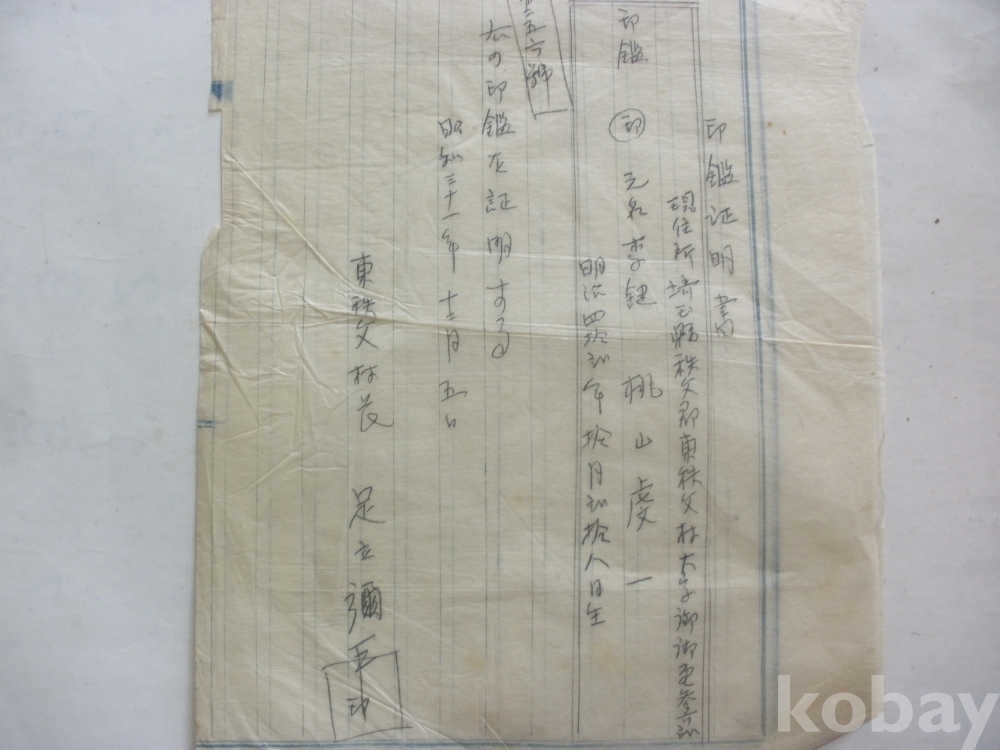 印鑑証明書
現住所埼玉縣秩父郡東秩父村大字御堂
印鑑 ㊞ 元名李鍵 桃山虔一
明治四拾弐年拾月弐拾八日生
五六號
右の印鑑を証明する
昭和三十一年十二月五日
東秩父村長 足立彌 印
kobay